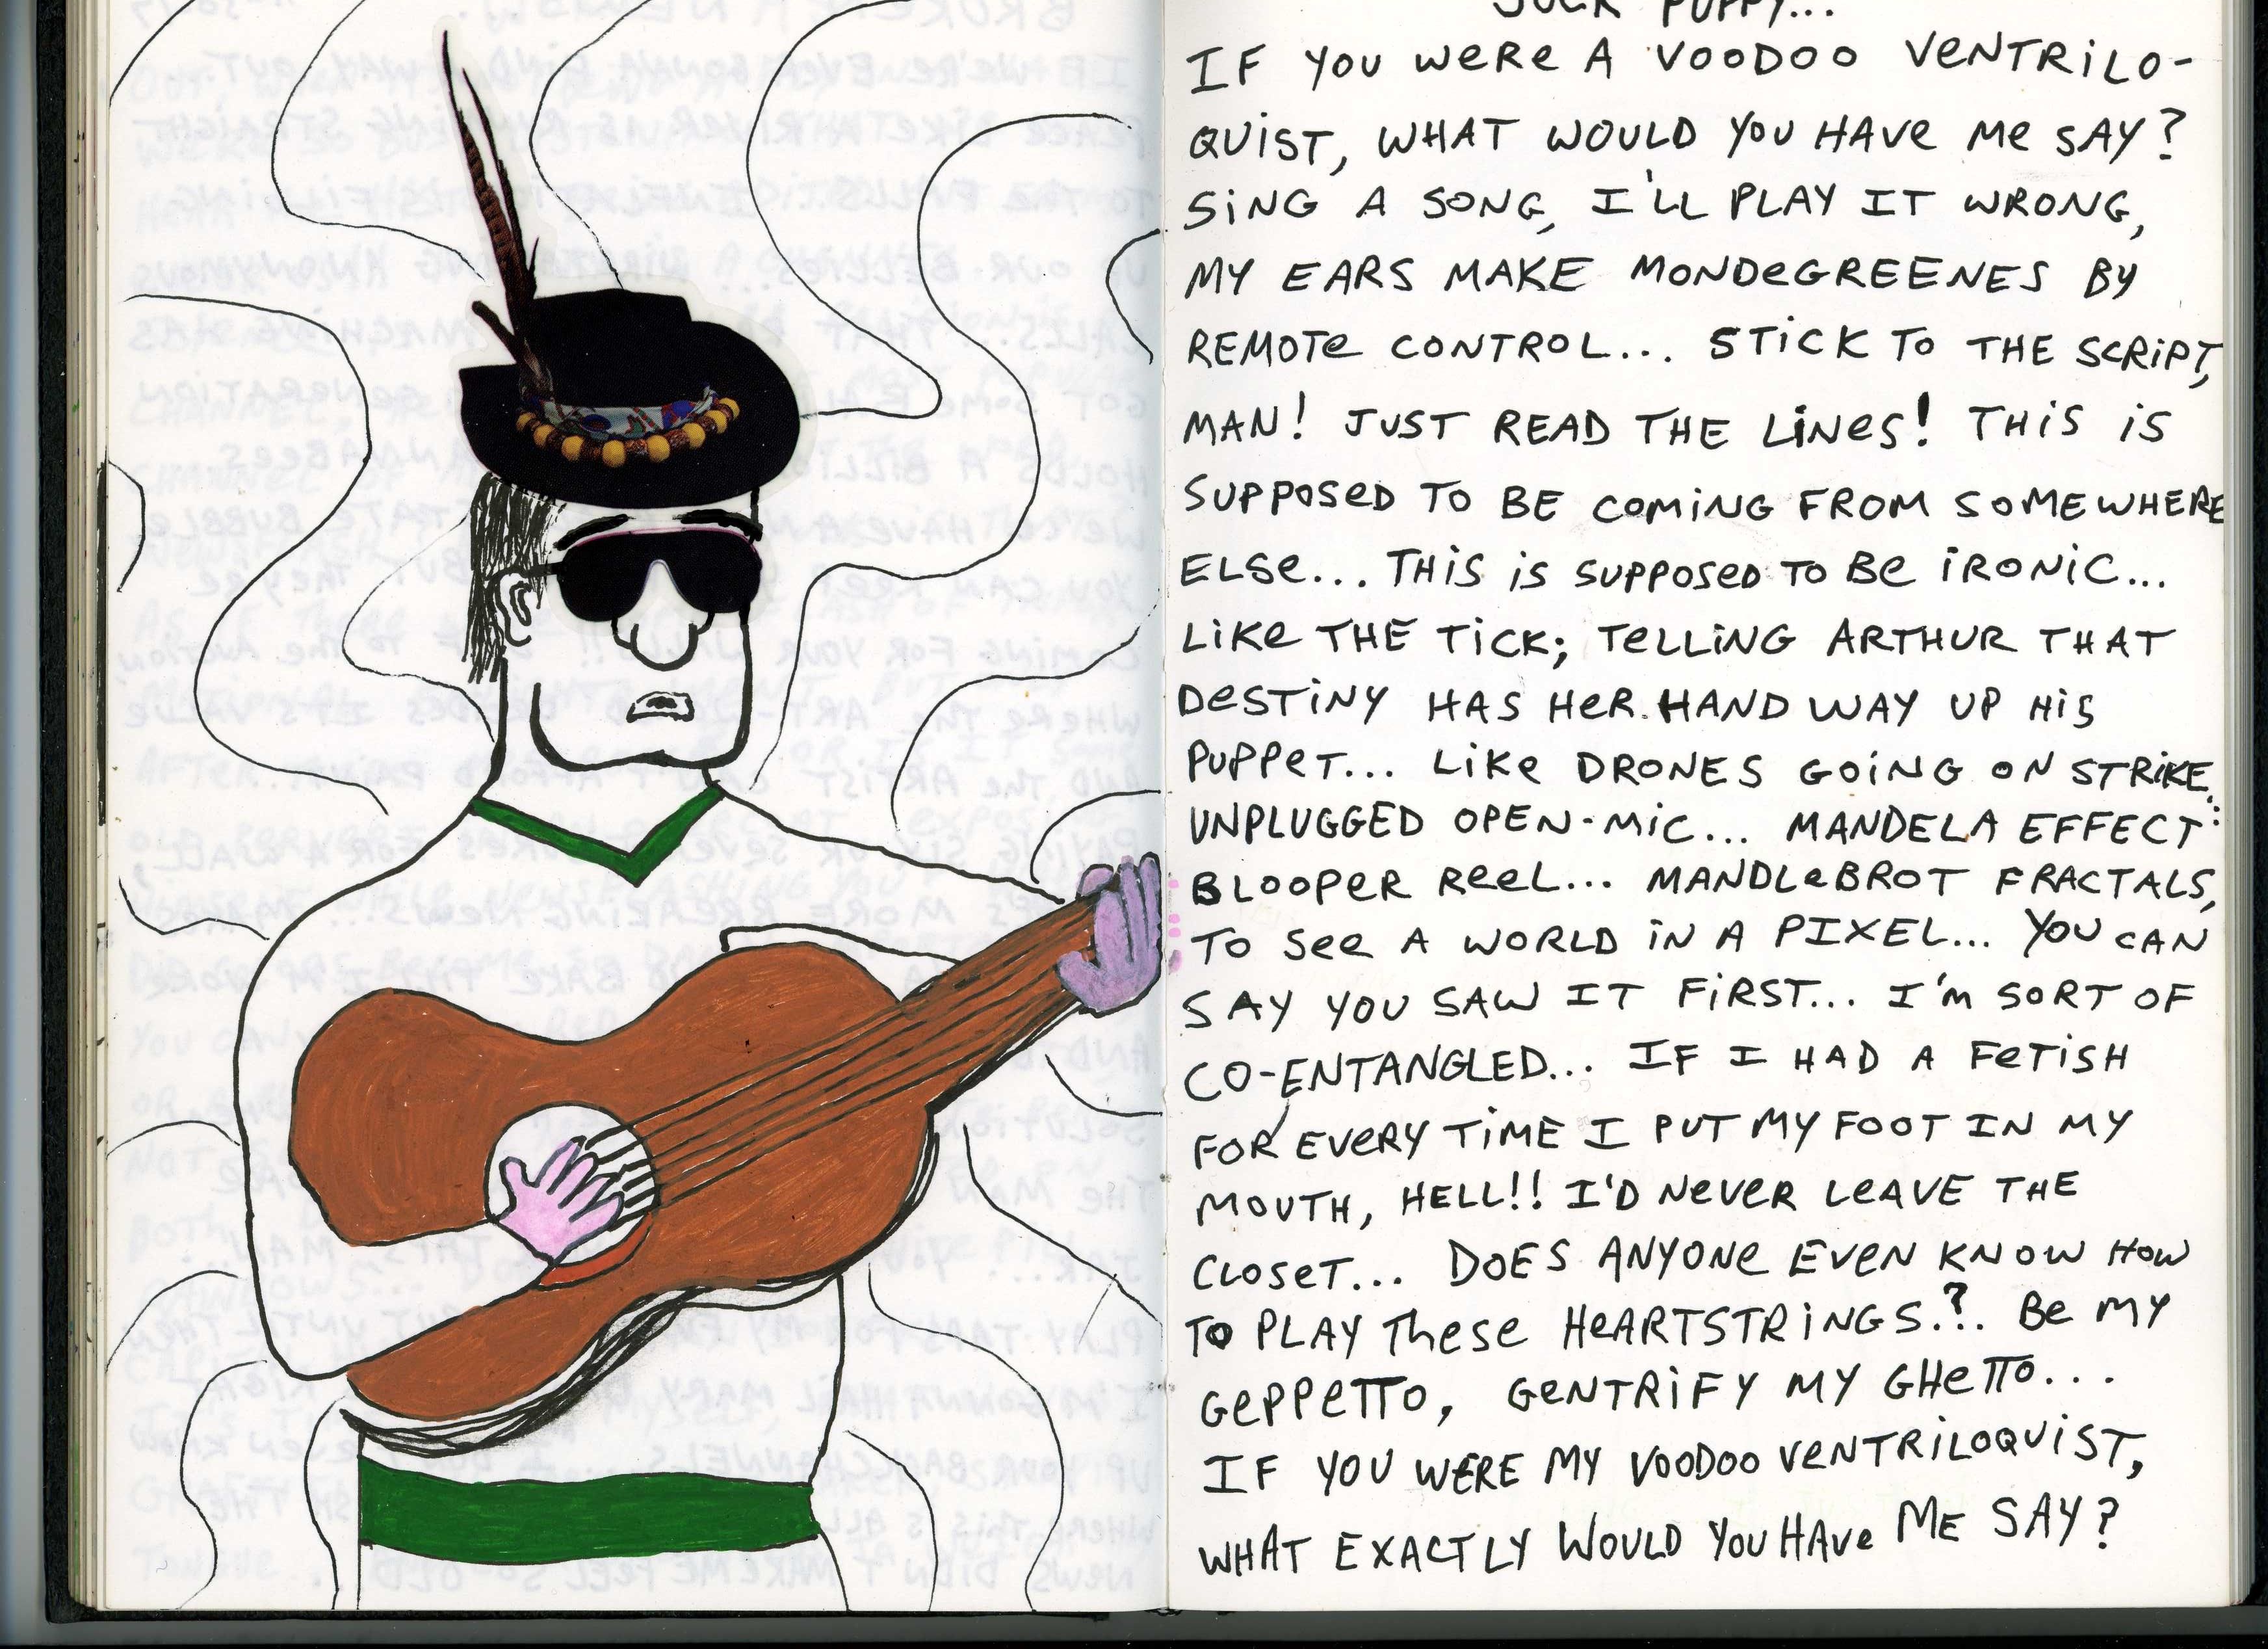 PUPPY...
IF YOU WERE A VOODOO VENTRILO-
QUIST, WHAT WOULD YOU HAVE ME SAY?
SING A SONG, I'LL PLAY IT WRONG,
MY EARS MAKE MONDEGREENES BY
REMOTE CONTROL... STICK TO THE SCRIPT,
MAN! JUST READ THE LINES! THIS IS
SUPPOSED TO BE COMING FROM SOMEWHERE
ELSE... THIS IS SUPPOSED TO BE IRONIC...
LIKE THE TICK; TELLING ARTHUR THAT
DESTINY HAS HER HAND WAY UP HIS
PUPPET... LIKE DRONES GOING ON STRIKE,
UNPLUGGED OPEN-MIC... MANDELA EFFECT:
BLOOPER REEL... MANDLEBROT FRACTALS,
TO SEE A WORLD IN A PIXEL... YOU CAN
SAY YOU SAW IT FIRST... I'M SORT OF
CO-ENTANGLED... IF I HAD A FETISH
FOR EVERY TIME I PUT MY FOOT IN MY
MOUTH, HELL!! I'D NEVER LEAVE THE
CLOSET... DOES ANYONE EVEN KNOW HOW
TO PLAY THESE HEARTSTRINGS.?. BE MY
GEPPETTO, GENTRIFY MY GHETTO...
IF YOU WERE MY VOODOO VENTRILOQUIST,
WHAT EXACTLY WOULD YOU HAVE ME SAY?